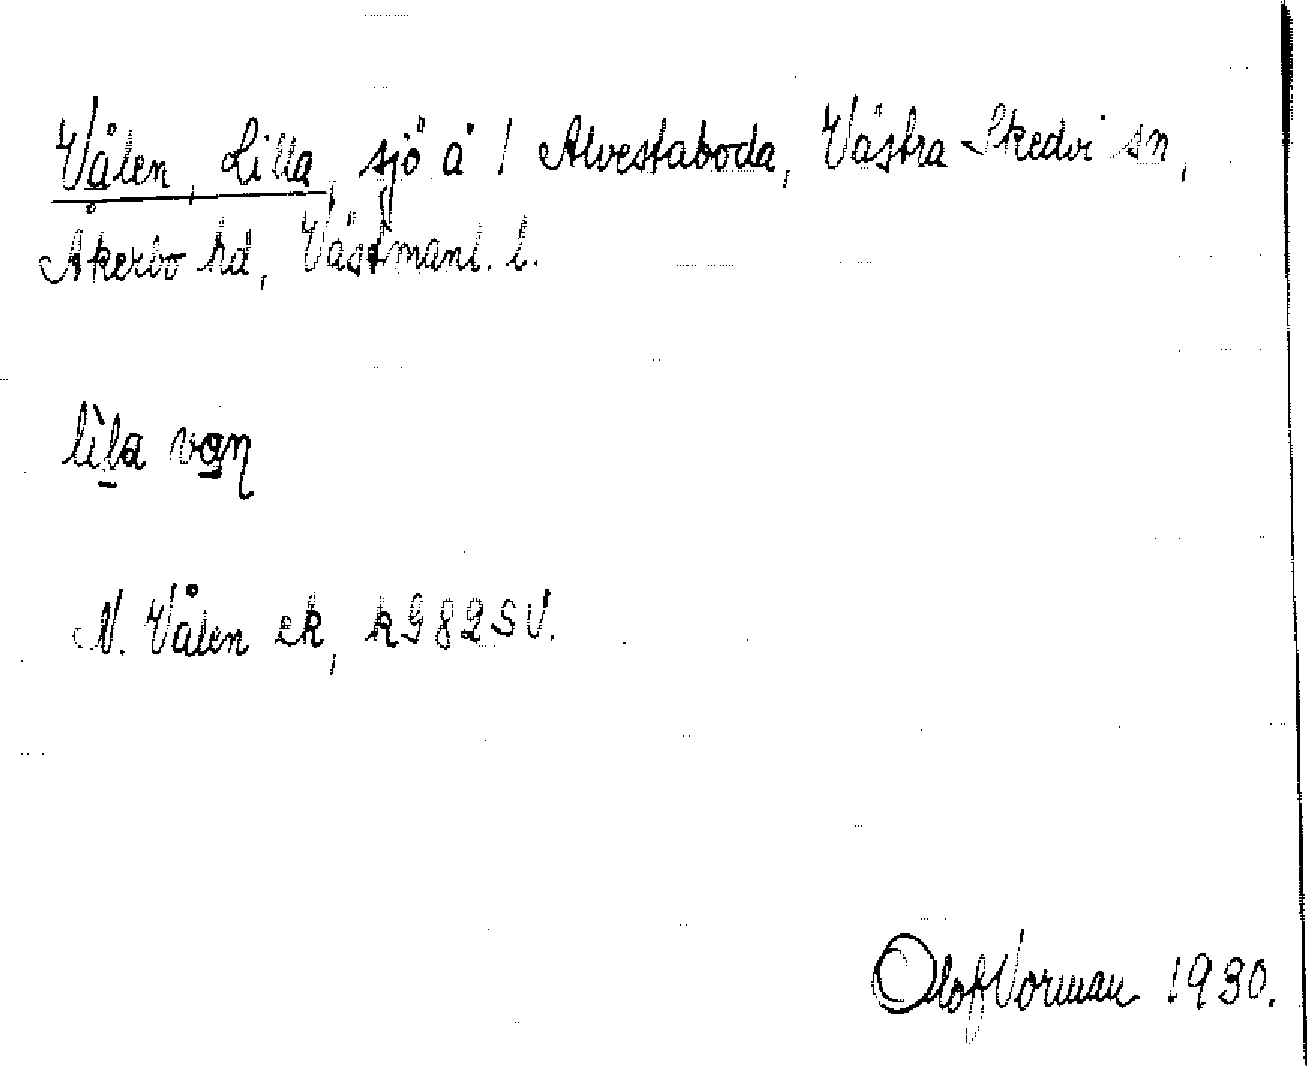 Vålen, Lilla, sjö å 1 Alvestaboda, Västra Skedvi sn,
Åkerbo hd, Västmanl. l.
lìla van
N. Vålen ek, k 982 SV.
Olof Vorman 1930.